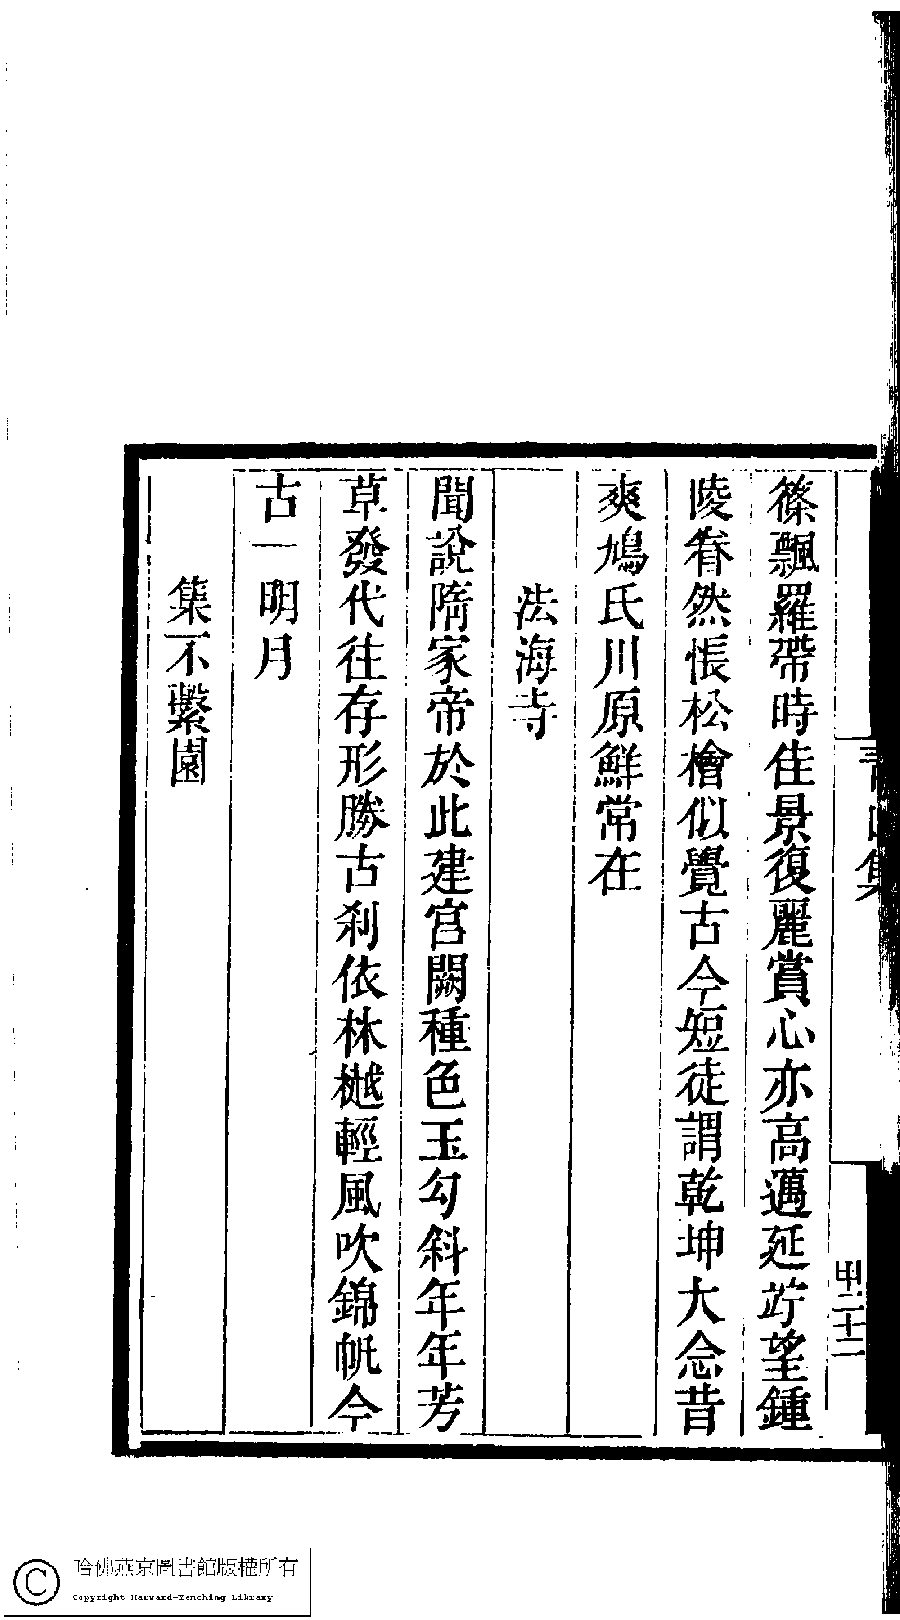 篠飄羅帶時佳景復麗賞心亦高邁延竚望鍾
陵眷然悵松檜似覺古今短徒謂乾坤大念昔
爽鳩氏川原鮮常在
法海寺
聞說隋家帝於此建宮闕種色玉勾斜年年芳
草發代往存形勝古刹依林樾輕風吹錦帆今
古一明月
集不繫園
集
甲二十二
哈佛燕京圖書館版權所有
Copyright Harvard-Yenching Library